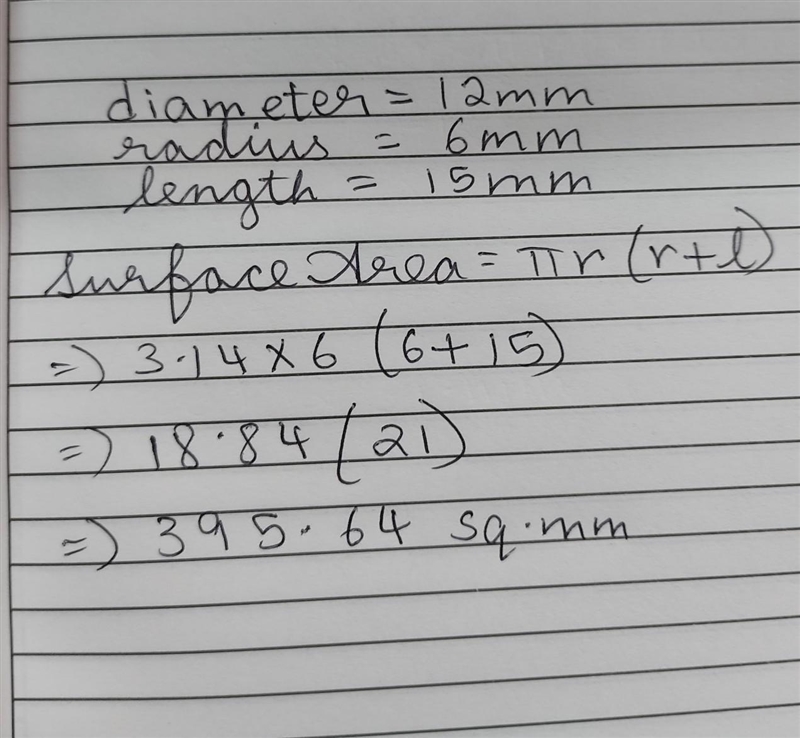 diameter = 12mm
radius = 6mm
length = 15mm
Surface Area = πr (r+l)
=) 3.14 x 6 (6+15)
=) 18.84 (21)
=) 395.64 sq.mm